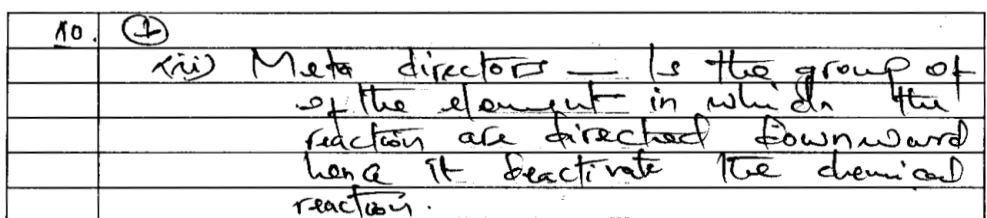 10. ①
(ii) Meta directors — Is the group of
of the element in which the
reaction are directed downward
hence it deactivate the chemical
reaction.